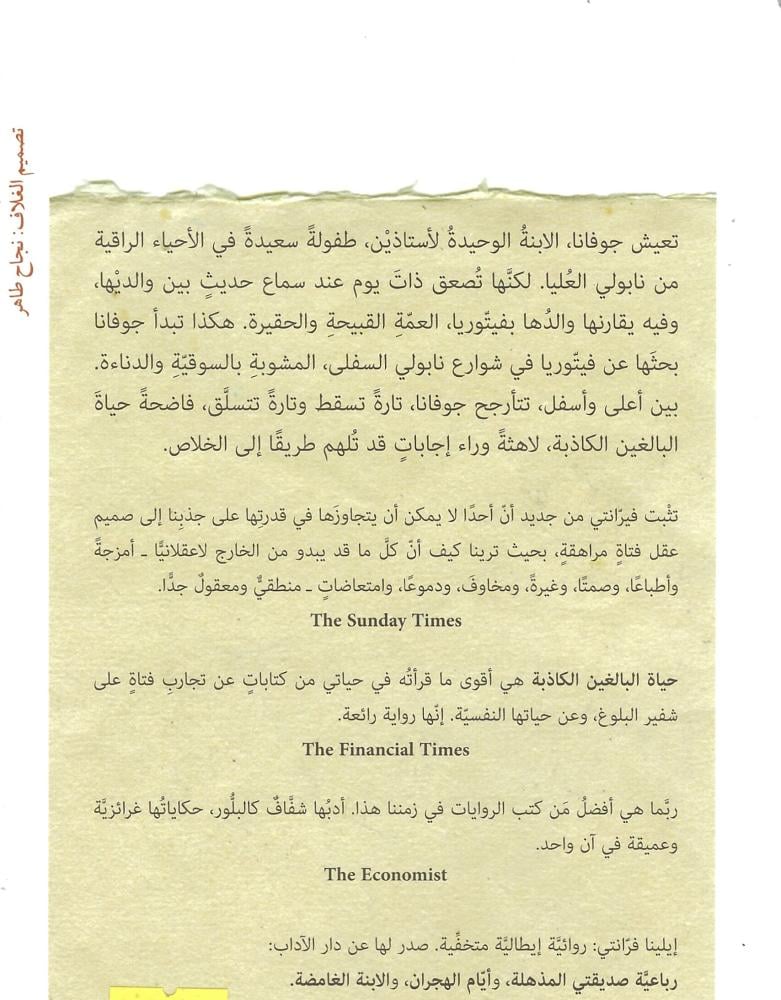 تصميم الغلاف: نجاح طاهر
تعيش جوفانا، الابنةُ الوحيدةُ لأستاذيْن، طفولةً سعيدةً في الأحياء الراقية
من نابولي العُليا. لكنَّها تُصعق ذاتَ يوم عند سماع حديثٍ بين والديْها،
وفيه يقارنها والدُها بفيتّوريا، العمّةِ القبيحةِ والحقيرة. هكذا تبدأ جوفانا
بحثَها عن فيتّوريا في شوارع نابولي السفلى، المشوبةِ بالسوقيّةِ والدناءة.
بين أعلى وأسفل، تتأرجح جوفانا، تارةً تسقط وتارةً تتسلَّق، فاضحةً حياةَ
البالغين الكاذبة، لاهثةً وراء إجاباتٍ قد تُلهم طريقًا إلى الخلاص.
تثْبت فيرّانتي من جديد أنّ أحدًا لا يمكن أن يتجاوزَها في قدرتِها على جذبِنا إلى صميم
عقل فتاةٍ مراهقةٍ، بحيث ترينا كيف أنّ كلَّ ما قد يبدو من الخارج لاعقلانيًّا ـ أمزجةً
وأطباعًا، وصمتًا، وغيرةً، ومخاوفَ، ودموعًا، وامتعاضاتٍ ـ منطقيٌّ ومعقولٌ جدًّا.
The Sunday Times
حياة البالغين الكاذبة هي أقوى ما قرأتُه في حياتي من كتاباتٍ عن تجاربِ فتاةٍ على
شفير البلوغ، وعن حياتها النفسيّة. إنّها رواية رائعة.
The Financial Times
ربَّما هي أفضلُ مَن كتب الروايات في زمننا هذا. أدبُها شفَّافٌ كالبلُّور، حكاياتُها غرائزيَّة
وعميقة في آن واحد.
The Economist
إيلينا فرّانتي: روائيَّة إيطاليَّة متخفِّية. صدر لها عن دار الآداب:
رباعيَّة صديقتي المذهلة، وأيّام الهجران، والابنة الغامضة.